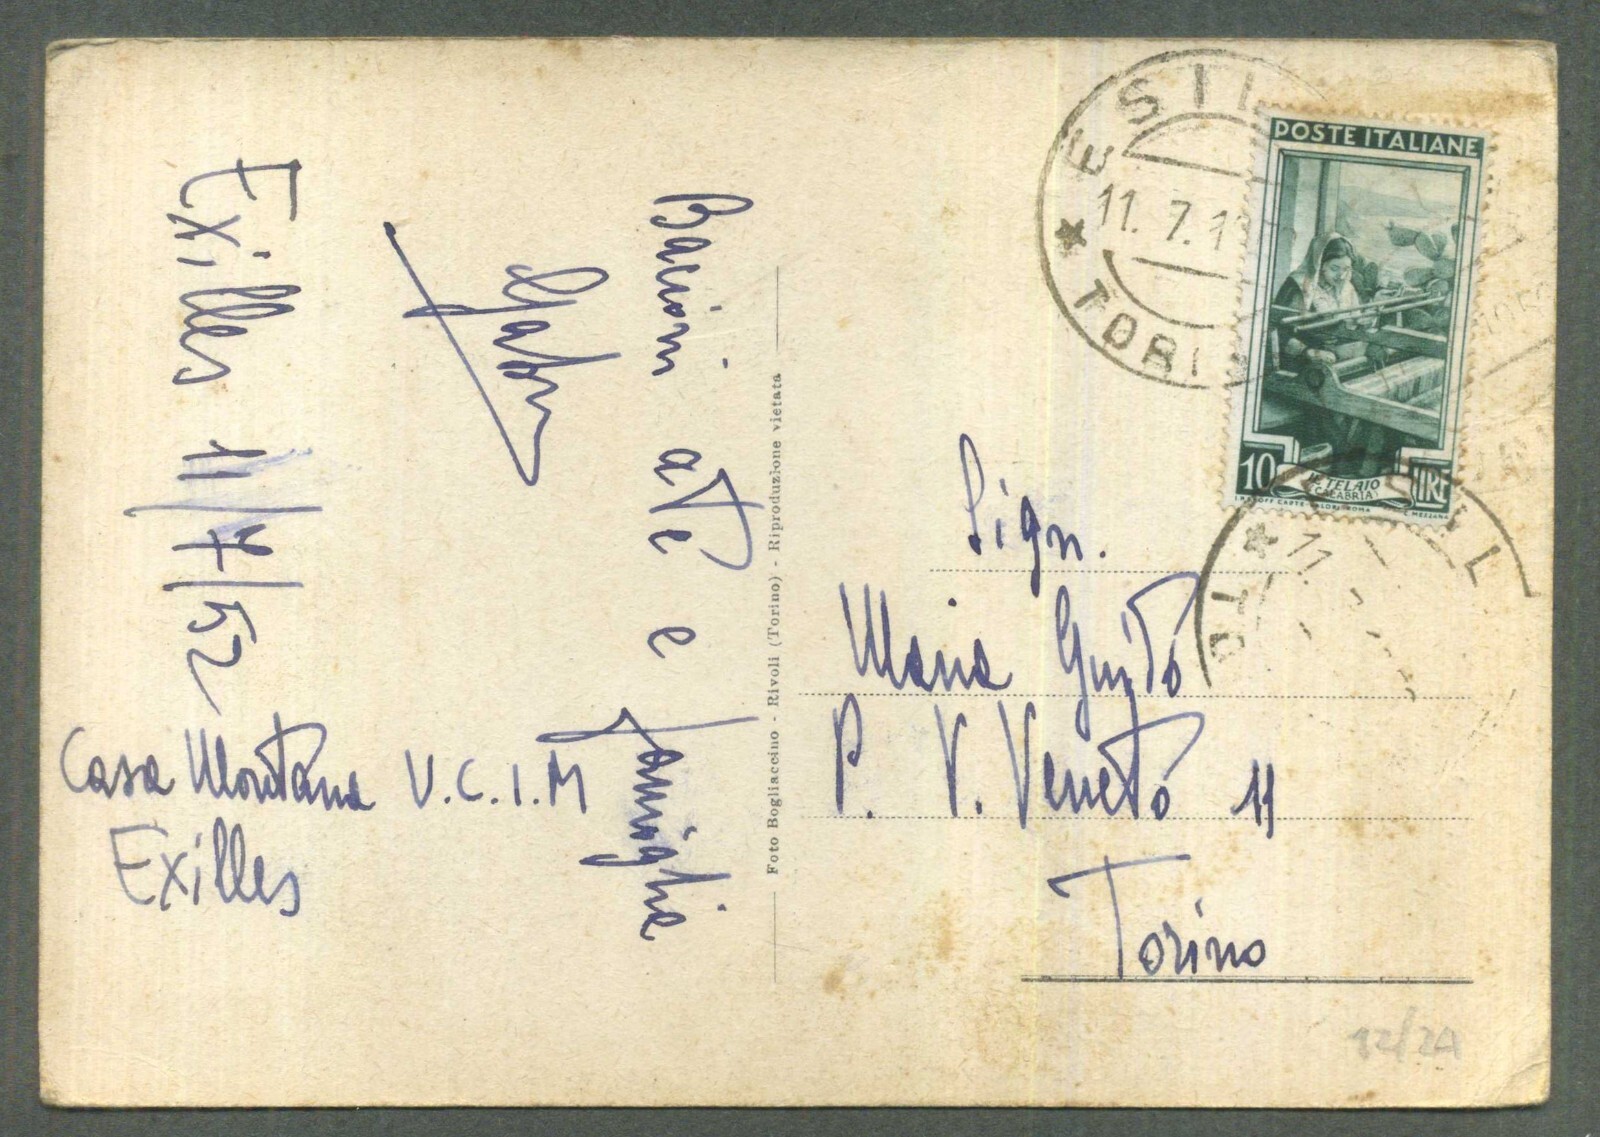 Exilles 11/7/52
Bacioni a te e famiglia
Casa Montana V.C.I.M
Exilles
Foto Bogliaccino - Rivoli (Torino) - Riproduzione vietata
ESIL
11. 7. 1
TORINO
POSTE ITALIANE
10 LIRE
IL TELAIO
(CALABRIA)
Sign.
Maria Guido
P. V. Veneto 11
Torino
ESIL
11.
TO
12/2A